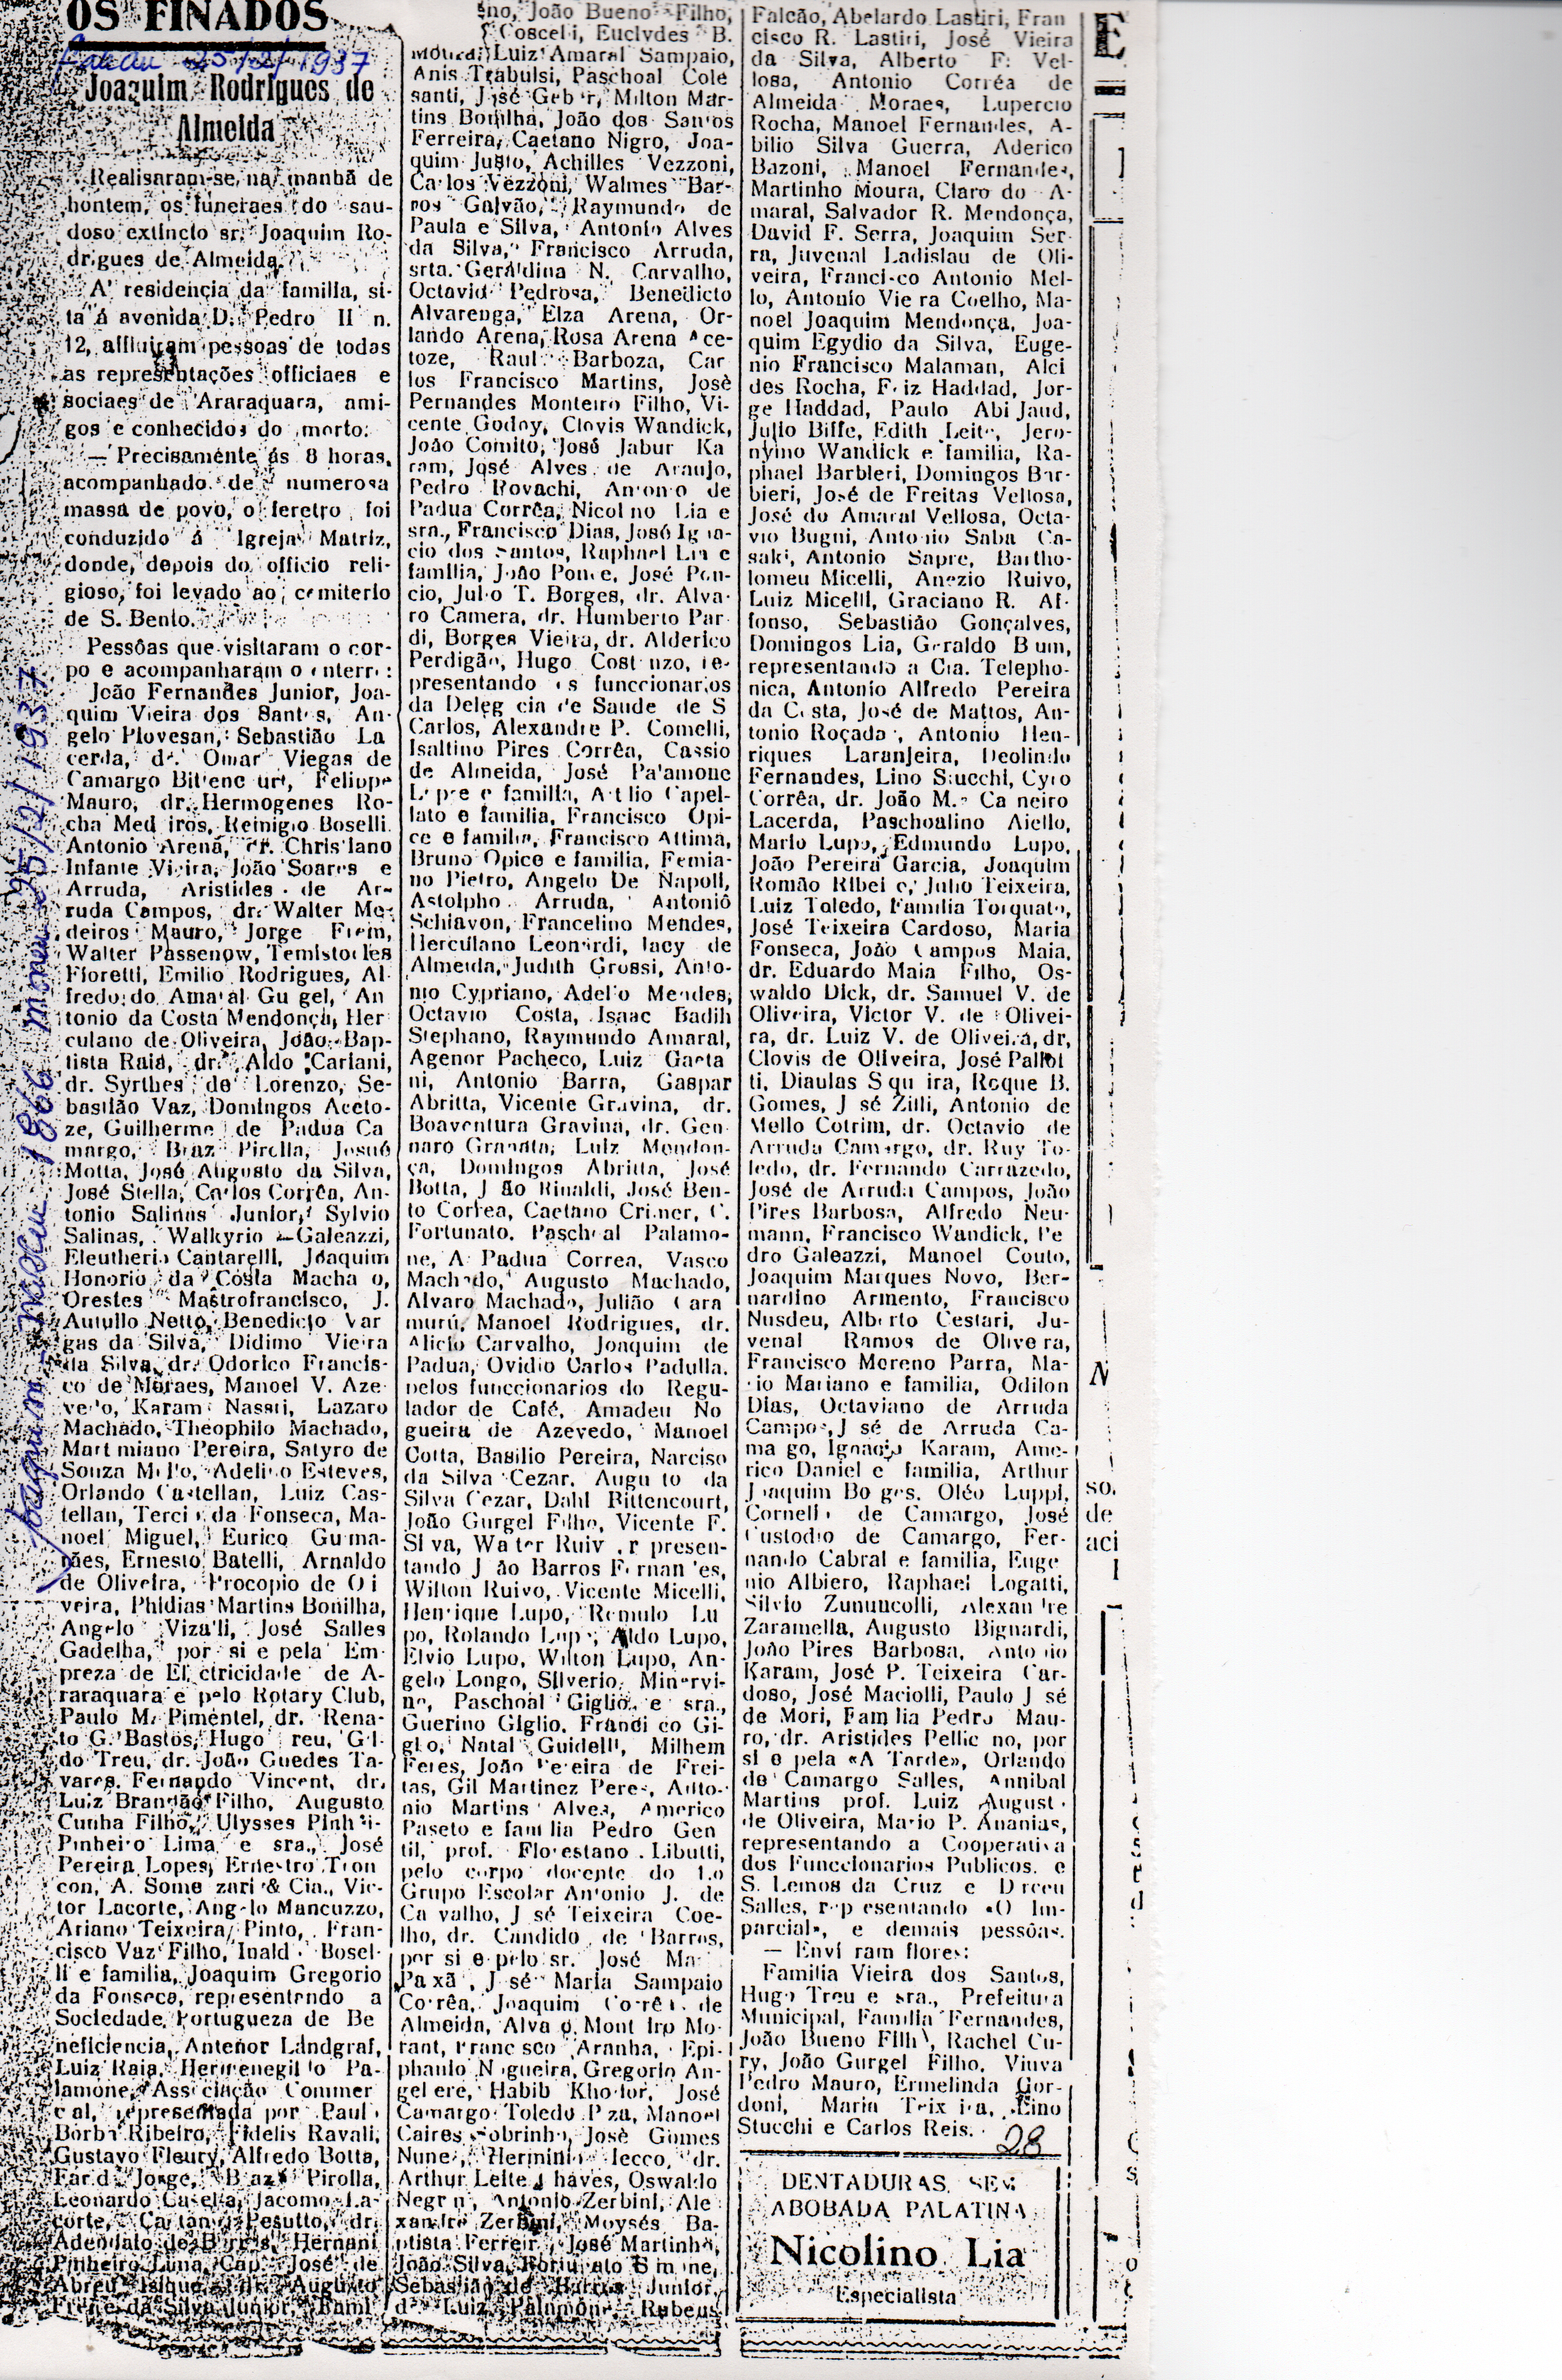 OS FINADOS
25/2/1937
Joaquim Rodrigues de
Almeida
Realisaram-se, na manhã de
hontem, os funeraes do sau-
doso extincto sr. Joaquim Ro-
drigues de Almeida.
A' residencia da familia, si-
ta á avenida D. Pedro II n.
12, affluiram pessoas de todas
as representações officiaes e
sociaes de Araraquara, ami-
gos e conhecidos do morto.
— Precisamente ás 8 horas,
acompanhado de numerosa
massa de povo, o feretro foi
conduzido á Igreja Matriz,
donde, depois do officio reli-
gioso, foi levado ao cemiterio
de S. Bento.
Pessôas que visitaram o cor-
po e acompanharam o enterro:
João Fernandes Junior, Joa-
quim Vieira dos Santos, An-
gelo Piovesan, Sebastião La
cerda, dr. Omar Viegas de
Camargo Bittencourt, Felippe
Mauro, dr. Hermogenes Ro-
cha Medeiros, Remigio Boselli.
Antonio Arena, dr. Christiano
Infante Vieira, João Soares e
Arruda, Aristides de Ar-
ruda Campos, dr. Walter Me-
deiros Mauro, Jorge
Walter Passenow, Temistocles
Fioretti, Emilio Rodrigues, Al-
fredo do Amaral Gurgel, An
tonio da Costa Mendonça, Her
culano de Oliveira, João Bap-
tista Raia, dr. Aldo Cariani,
dr. Syrthes de Lorenzo, Se-
bastião Vaz, Domingos Aceto-
ze, Guilherme de Padua Ca
margo, Braz Pirolla, Josué
Motta, José Augusto da Silva,
José Stella, Carlos Corrêa, An-
tonio Salinas Junior, Sylvio
Salinas, Walkyrio Galeazzi,
Eleutherio Cantarelli, Joaquim
Honorio da Costa Machado,
Orestes Mastrofrancisco, J.
Autullo Netto, Benedicto Var
gas da Silva, Didimo Vieira
da Silva, dr. Odorico Francis-
co de Moraes, Manoel V. Aze
vedo, Karam Nassti, Lazaro
Machado, Theophilo Machado,
Martimiano Pereira, Satyro de
Souza Mello, Adelino Esteves,
Orlando Castellan, Luiz Cas-
tellan, da Fonseca, Ma-
noel Miguel, Eurico Guima-
rães, Ernesto Batelli, Arnaldo
de Oliveira, Procopio de Oli
veira, Phidias Martins Bonilha,
Angelo Vizalli, José Salles
Gadelha, por si e pela Em
preza de Electricidade de A-
raraquara e pelo Rotary Club,
Paulo M. Pimentel, dr. Rena-
to G. Bastos, Hugo Treu, Gil-
do Treu, dr. João Guedes Ta-
vares, Fernando Vincent, dr.
Luiz Brandão Filho, Augusto
Cunha Filho, Ulysses
Pinheiro Lima e sra., José
Pereira Lopes, Ernestro Tron
con, A. & Cia., Vic-
tor Lacorte, Angelo Mancuzzo,
Ariano Teixeira Pinto, Fran-
cisco Vaz Filho, Inaldo Bosel-
li e familia, Joaquim Gregorio
da Fonseca, representando a
Sociedade Portugueza de Be
neficiencia, Antenor Landgraf,
Luiz Raia, Hermenegildo Pa-
lamone, Associação Commer
cial, representada por Paulo
Borba Ribeiro, Fidelis Ravali,
Gustavo Fleury, Alfredo Botta,
Farid Jorge, Braz Pirolla,
Leonardo Casella, Jacomo La-
corte, Caetano Pesutto, dr.
Adeodato de Barros, Hernani
Pinheiro Lima, Cap. José de
Abreu dr. Augusto
Freire da Silva Junior,
no, João Bueno Filho,
Euclydes B.
Moura, Luiz Amaral Sampaio,
Anis Trabulsi, Paschoal Cole
santi, José Milton Mar-
tins Bonilha, João dos Santos
Ferreira, Caetano Nigro, Joa-
quim Justo, Achilles Vezzoni,
Carlos Vezzoni, Walmes Bar-
ros Galvão, Raymundo de
Paula e Silva, Antonio Alves
da Silva, Francisco Arruda,
srta. Geraldina N. Carvalho,
Octavio Pedrosa, Benedicto
Alvarenga, Elza Arena, Or-
lando Arena, Rosa Arena Ace-
toze, Raul Barboza, Car
los Francisco Martins, José
Fernandes Monteiro Filho, Vi-
cente Godoy, Clovis Wandick,
João Comito, José Jabur Ka
ram, José Alves de Araujo,
Pedro Rovachi, Antonio de
Padua Corrêa, Nicolino Lia e
sra., Francisco Dias, José Igna-
cio dos Santos, Raphael Lia e
familia, João Ponce, José Pon-
cio, Julio T. Borges, dr. Alva-
ro Camera, dr. Humberto Par
di, Borges Vieira, dr. Alderico
Perdigão, Hugo Costanzo, re-
presentando os funccionarios
da Delegacia de Saude de S
Carlos, Alexandre P. Comelli,
Isaltino Pires Corrêa, Cassio
de Almeida, José Palamone
e familia, Attilio Capel-
lato e familia, Francisco Opi-
ce e familia, Francisco Attima,
Bruno Opice e familia, Femia-
no Pietro, Angelo De Napoli,
Astolpho Arruda, Antonio
Schiavon, Francelino Mendes,
Herculano Leonardi, Iacy de
Almeida, Judith Grossi, Anto-
nio Cypriano, Adelio Mendes,
Octavio Costa, Isaac Badih
Stephano, Raymundo Amaral,
Agenor Pacheco, Luiz Gaeta
ni, Antonio Barra, Gaspar
Abritta, Vicente Gravina, dr.
Boaventura Gravina, dr. Gen
naro Granata, Luiz Mendon-
ça, Domingos Abritta, José
Botta, João Rinaldi, José Ben-
to Corrêa, Caetano C.
Fortunato, Paschoal Palamo-
ne, A Padua Correa, Vasco
Machado, Augusto Machado,
Alvaro Machado, Julião Cara
murú, Manoel Rodrigues, dr.
Alicio Carvalho, Joaquim de
Padua, Ovidio Carlos Padulla,
pelos funccionarios do Regu-
lador de Café, Amadeu No
gueira de Azevedo, Manoel
Cotta, Basilio Pereira, Narciso
da Silva Cezar, Augusto da
Silva Cezar, Dahl Bittencourt,
João Gurgel Filho, Vicente F.
Silva, Walter Ruivo, represen-
tando João Barros Fernandes,
Wilton Ruivo, Vicente Micelli,
Henrique Lupo, Romulo Lu
po, Rolando Lupo, Aldo Lupo,
Elvio Lupo, Wilton Lupo, An-
gelo Longo, Silverio Minervi-
no, Paschoal Giglio e sra.,
Guerino Giglio, Francisco Gi-
glio, Natal Guidelli, Milhem
Feres, João Pereira de Frei-
tas, Gil Martinez Peres, Anto-
nio Martins Alves, Americo
Paseto e familia Pedro Gen
til, prof. Florestano Libutti,
pelo corpo docente do 1.o
Grupo Escolar Antonio J. de
Carvalho, José Teixeira Coe-
lho, dr. Candido de Barros,
por si e pelo sr. José Ma
José Maria Sampaio
Corrêa, Joaquim Corrêa de
Almeida, Alvaro Mo-
rant, Francisco Aranha, Epi-
phanio Nogueira, Gregorio An-
Habib Khodor, José
Camargo Toledo Piza, Manoel
Caires Sobrinho, José Gomes
Nunes, Herminio Iecco, dr.
Arthur Leite Chaves, Oswaldo
Negrini, Antonio Zerbini, Ale
xandre Zerbini, Moysés Ba-
ptista Ferreira, José Martinho,
João Silva,
Sebastião de Barros Junior,
Luiz Palamone, Rubens
Falcão, Abelardo Lastiri, Fran
cisco R. Lastiri, José Vieira
da Silva, Alberto F. Vel-
losa, Antonio Corrêa de
Almeida Moraes, Lupercio
Rocha, Manoel Fernandes, A-
bilio Silva Guerra, Aderico
Bazoni, Manoel Fernandes,
Martinho Moura, Claro do A-
maral, Salvador R. Mendonça,
David F. Serra, Joaquim Ser-
ra, Juvenal Ladislau de Oli-
veira, Francisco Antonio Mel-
lo, Antonio Vieira Coelho, Ma-
noel Joaquim Mendonça, Joa-
quim Egydio da Silva, Euge-
nio Francisco Malaman, Alci
des Rocha, Feiz Haddad, Jor-
ge Haddad, Paulo Abi Jaud,
Julio Biffe, Edith Leite, Jero-
nymo Wandick e familia, Ra-
phael Barbieri, Domingos Bar-
bieri, José de Freitas Vellosa,
José do Amaral Vellosa, Octa-
vio Bugni, Antonio Saba Ca-
saki, Antonio Sapre, Bartho-
lomeu Micelli, Anezio Ruivo,
Luiz Micelli, Graciano R. Af-
fonso, Sebastião Gonçalves,
Domingos Lia, Geraldo Blum,
representando a Cia. Telepho-
nica, Antonio Alfredo Pereira
da Costa, José de Mattos, An-
tonio Roçada, Antonio Hen-
riques Laranjeira, Deolindo
Fernandes, Lino Stucchi, Cyro
Corrêa, dr. João M. Carneiro
Lacerda, Paschoalino Aiello,
Mario Lupo, Edmundo Lupo,
João Pereira Garcia, Joaquim
Romão Ribeiro, Julio Teixeira,
Luiz Toledo, Familia Torquato,
José Teixeira Cardoso, Maria
Fonseca, João Campos Maia,
dr. Eduardo Maia Filho, Os-
waldo Dick, dr. Samuel V. de
Oliveira, Victor V. de Olivei-
ra, dr. Luiz V. de Oliveira, dr.
Clovis de Oliveira, José Pallot
ti, Diaulas Squira, Roque B.
Gomes, José Zilli, Antonio de
Mello Cotrim, dr. Octavio de
Arruda Camargo, dr. Ruy To-
ledo, dr. Fernando Carrazedo,
José de Arruda Campos, João
Pires Barbosa, Alfredo Neu-
mann, Francisco Wandick, Pe
dro Galeazzi, Manoel Couto,
Joaquim Marques Novo, Ber-
nardino Armento, Francisco
Nusdeu, Alberto Cestari, Ju-
venal Ramos de Oliveira,
Francisco Moreno Parra, Ma-
rio Mariano e familia, Odilon
Dias, Octaviano de Arruda
Campos, José de Arruda Ca-
margo, Ignacio Karam, Ame-
rico Daniel e familia, Arthur
Joaquim Borges, Oléo Luppi,
Cornelio de Camargo, José
Custodio de Camargo, Fer-
nando Cabral e familia, Euge
nio Albiero, Raphael Logatti,
Silvio Zununcolli, Alexandre
Zaramella, Augusto Bignardi,
João Pires Barbosa, Antonio
Karam, José P. Teixeira Car-
doso, José Maciolli, Paulo José
de Mori, Familia Pedro Mau-
ro, dr. Aristides Pellicano, por
si e pela «A Tarde», Orlando
de Camargo Salles, Annibal
Martins prof. Luiz Augusto
de Oliveira, Mario P. Ananias,
representando a Cooperativa
dos Funccionarios Publicos, e
S. Lemos da Cruz e Dirceu
Salles, representando «O Im-
parcial», e demais pessôas.
— Enviaram flores:
Familia Vieira dos Santos,
Hugo Treu e sra., Prefeitura
Municipal, Familia Fernandes,
João Bueno Filho, Rachel Cu-
ry, João Gurgel Filho, Viuva
Pedro Mauro, Ermelinda Gor-
doni, Maria Teixeira, Lino
Stucchi e Carlos Reis.
28
DENTADURAS SEM
ABOBADA PALATINA
Nicolino Lia
Especialista
Joaquim - nasceu 1866 morreu 25/2/1937
E
N
so.
de
aci